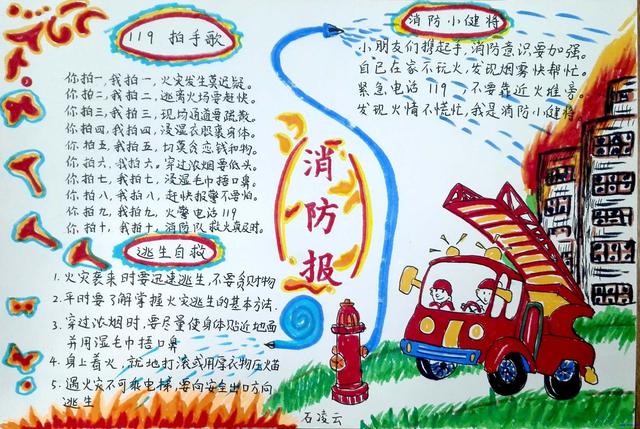 119 拍手歌
你拍一,我拍一,火灾发生莫迟疑。
你拍二,我拍二,逃离火场要赶快。
你拍三,我拍三,现场通道要疏散。
你拍四,我拍四,浸湿衣服裹身体。
你拍五,我拍五,切莫贪恋钱和物。
你拍六,我拍六。穿过浓烟要低头。
你拍七,我拍七,浸湿毛巾捂口鼻。
你拍八,我拍八,赶快报警不要怕。
你拍九,我拍九,火警电话119
你拍十,我拍十,消防队救火真及时。
逃生自救
1. 火灾袭来时要迅速逃生,不要贪财物
2. 平时要了解掌握火灾逃生的基本方法.
3. 穿过浓烟时,要尽量使身体贴近地面
并用湿毛巾捂口鼻
4. 身上着火,就地打滚或用厚衣物压火苗
5. 遇火灾不可乘电梯,要向安全出口方向
逃生
消防报
消防小健将
小朋友们携起手,消防意识要加强。
自己在家不玩火,发现烟雾快帮忙。
紧急电话119 不要靠近火堆旁。
发现火情不慌忙,我是消防小健将。
石凌云